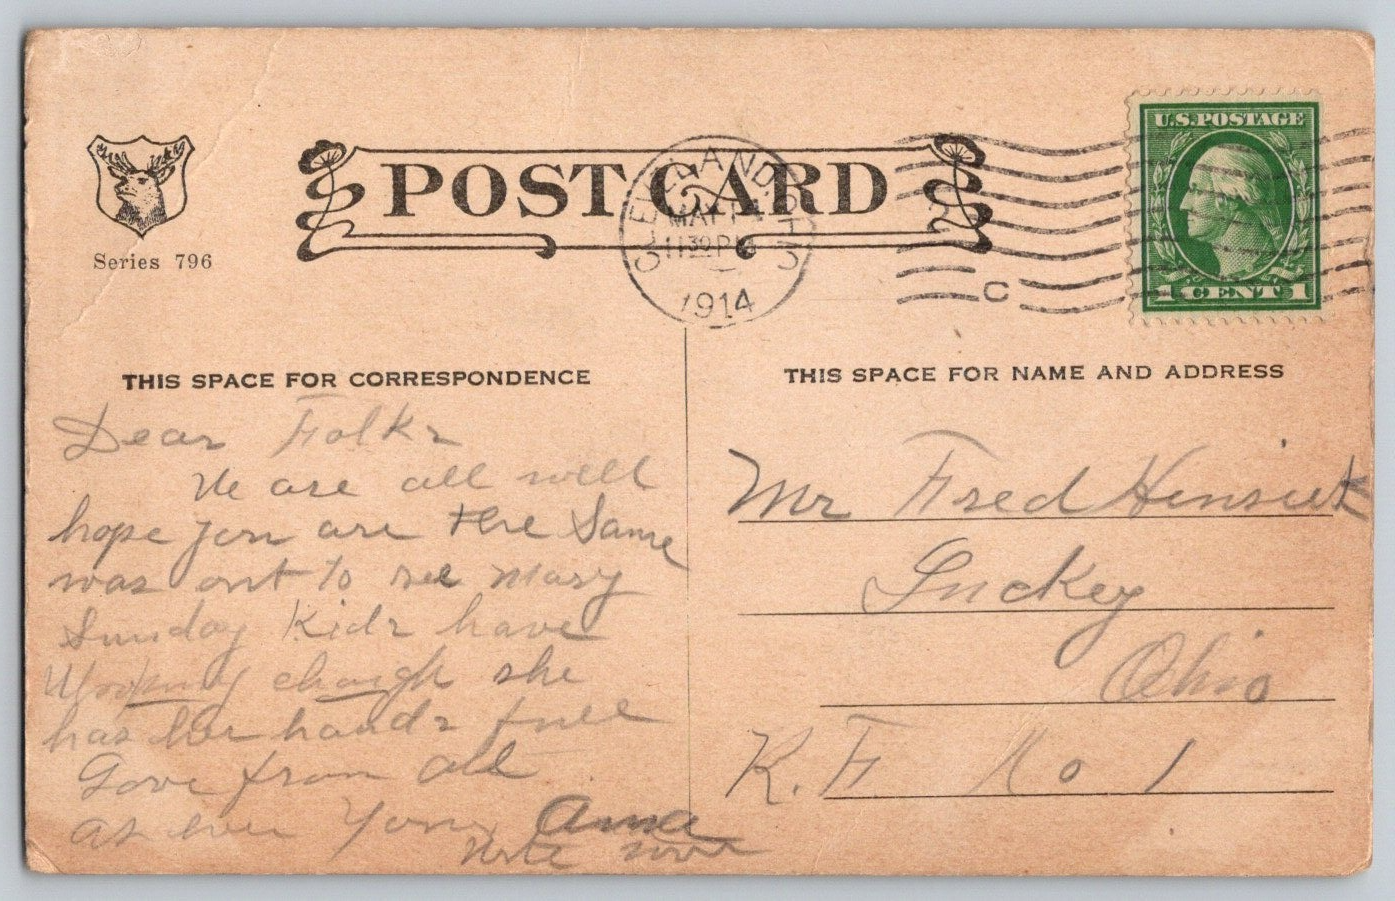 POST CARD
Series 796
CLEVELAND, OHIO
MAY
1130 PM
1914
C
U.S. POSTAGE
1 CENT 1
THIS SPACE FOR CORRESPONDENCE
Dear Folks
We are all well
hope you are the Same
was out to see Mary
Sunday Kids have
Whooping chough she
has her hands full
Love from all
as ever Your Anna
Write soon
THIS SPACE FOR NAME AND ADDRESS
Mr Fred
Luckey
Ohio
R. F No 1